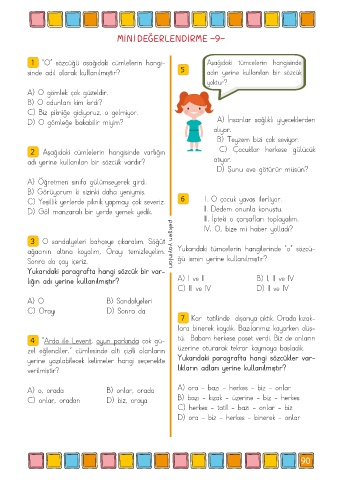 MİNİ DEĞERLENDİRME -9-
1 "O" sözcüğü aşağıdaki cümlelerin hangi-
sinde adıl olarak kullanılmıştır?
A) O gömlek çok güzeldir.
B) O odunları kim kırdı?
C) Biz pikniğe gidiyoruz, o gelmiyor.
D) O gömleğe bakabilir miyim?
2 Aşağıdaki cümlelerin hangisinde varlığın
adı yerine kullanılan bir sözcük vardır?
A) Öğretmen sınıfa gülümseyerek girdi.
B) Görüyorum ki sizinki daha yeniymiş.
C) Yeşillik yerlerde piknik yapmayı çok severiz.
D) Göl manzaralı bir yerde yemek yedik.
3 O sandalyeleri bahçeye çıkaralım. Söğüt
ağacının altına koyalım. Orayı temizleyelim.
Sonra da çay içeriz.
Yukarıdaki paragrafta hangi sözcük bir var-
lığın adı yerine kullanılmıştır?
A) O B) Sandalyeleri
C) Orayı D) Sonra da
4 "Arda ile Levent, oyun parkında çok gü-
zel eğlendiler." cümlesinde altı çizili olanların
yerine yazılabilecek kelimeler hangi seçenekte
verilmiştir?
A) o, orada B) onlar, orada
C) onlar, oradan D) biz, oraya
5 Aşağıdaki tümcelerin hangisinde
adın yerine kullanılan bir sözcük
yoktur?
A) İnsanlar sağlıklı yiyeceklerden
alıyor.
B) Teyzem bizi çok seviyor.
C) Çocuklar herkese gülücük
atıyor.
D) Şunu eve götürür müsün?
6 I. O çocuk yavaş ilerliyor.
II. Dedem onunla konuştu.
III. İpteki o çarşafları toplayalım.
IV. O, bize mi haber yolladı?
Yukarıdaki tümcelerin hangilerinde "o" sözcü-
ğü ismin yerine kullanılmıştır?
A) I ve II B) I, II ve IV
C) III ve IV D) II ve IV
7 Kar tatilinde dışarıya çıktık. Orada kızak-
lara binerek kaydık. Bazılarımız kayarken düş-
tü. Babam herkese poşet verdi. Biz de onların
üzerine oturarak tekrar kaymaya başladık.
Yukarıdaki paragrafta hangi sözcükler var-
lıkların adları yerine kullanılmıştır?
A) ora - bazı - herkes - biz - onlar
B) bazı - kızak - üzerine - biz - herkes
C) herkes - tatil - bazı - onlar - biz
D) ora - biz - herkes - binerek - onlar
90